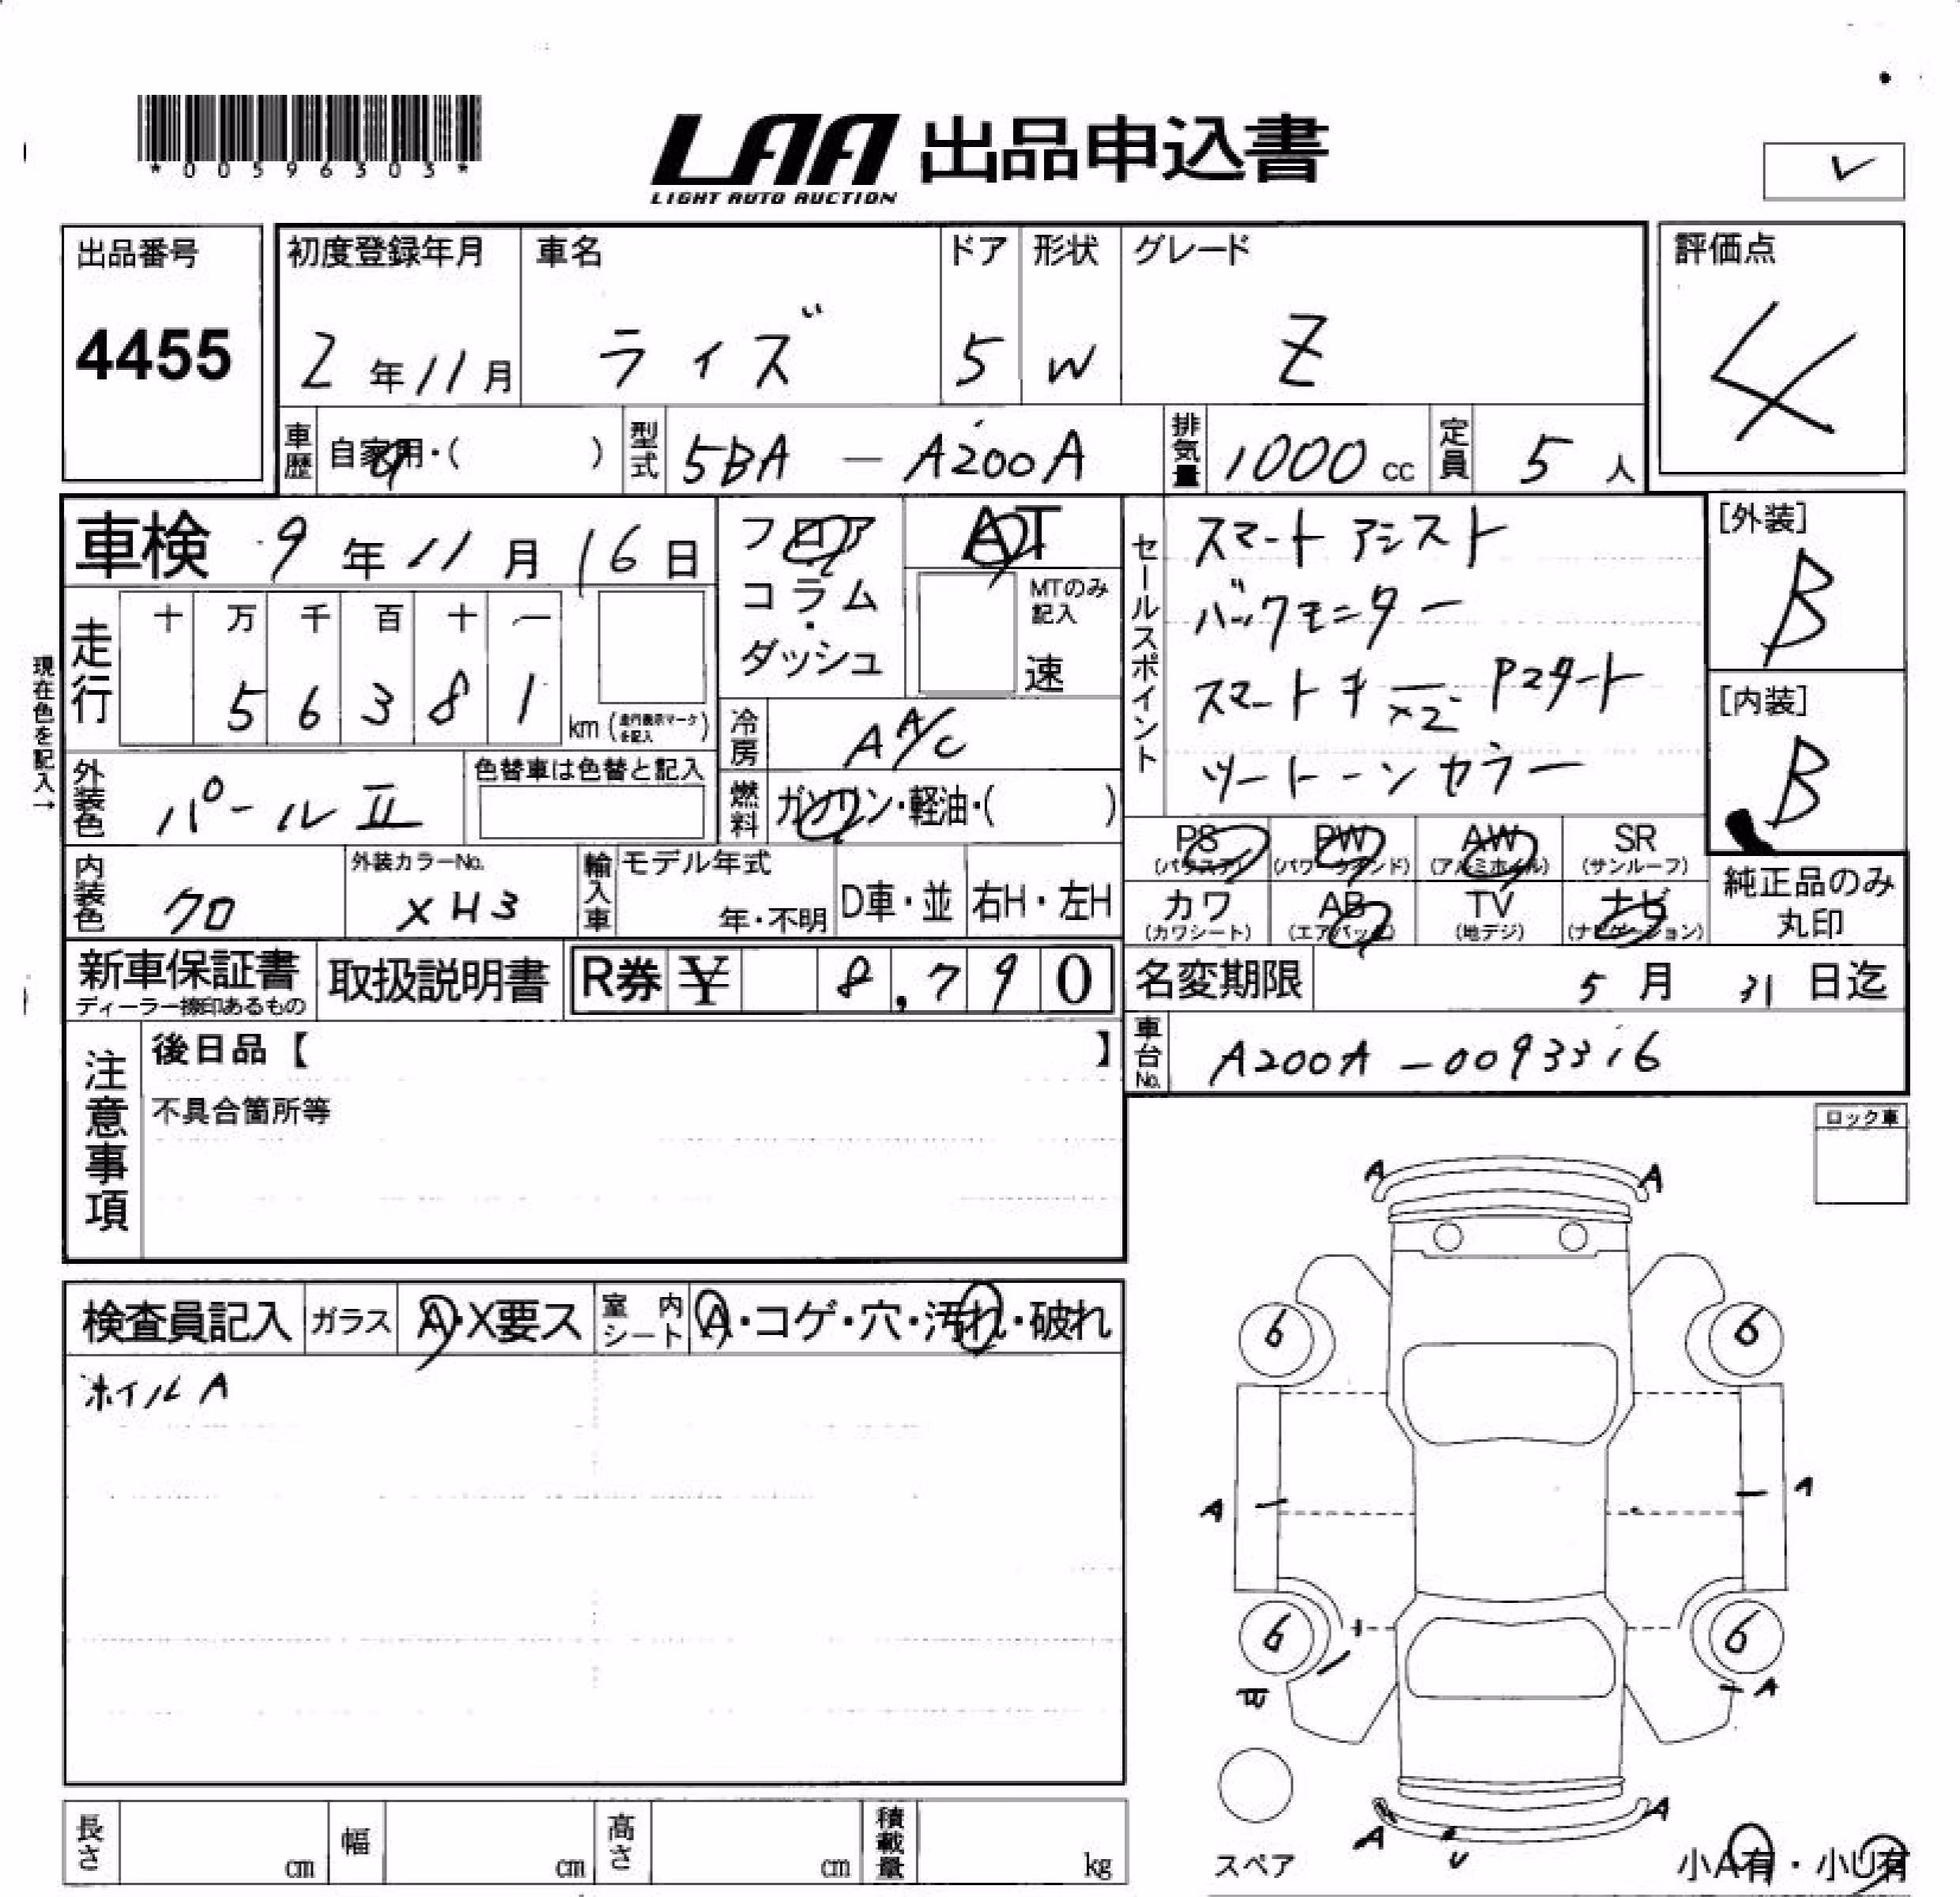 *00596303*
LAA 出品申込書
LIGHT AUTO AUCTION
出品番号
4455
初度登録年月
2年11月
車名
ライズ
ドア
5
形状
W
グレード
Z
評価点
4
車歴 自家用・( )
型式 5BA - A200A
排気量 1000 cc
定員 5 人
車検 9年11月16日
現在色を記入→
走行
十 万 千 百 十 一
5 6 3 8 1
km (走行表示マークを記入)
外装色 パールII
色替車は色替と記入
内装色 クロ
外装カラーNo.
XH3
フロア
コラム
・
ダッシュ
AT
MTのみ記入
速
冷房 AA/C
燃料 ガソリン・軽油・( )
輸入車
モデル年式
年・不明
D車・並
右H・左H
セールスポイント
スマートアシスト
バックモニター
スマートキー×2 Pスタート
ツートーンカラー
[外装]
B
[内装]
B
PS
(パワステ)
PW
(パワーウインド)
AW
(アルミホイル)
SR
(サンルーフ)
カワ
(カワシート)
AB
(エアバック)
TV
(地デジ)
ナビ
(ナビゲーション)
純正品のみ
丸印
新車保証書
ディーラー捺印あるもの
取扱説明書
R券 ¥ 8,790
名変期限 5月31日迄
車台No. A200A-0093316
注意事項
後日品【 】
不具合箇所等
ロック車
検査員記入
ガラス A・X要ス
室内シート A・コゲ・穴・汚れ・破れ
ホイルA
A A
6 6
A A
6 6
A
A A
U
スペア
小A有・小U有
長さ cm
幅 cm
高さ cm
積載量 kg